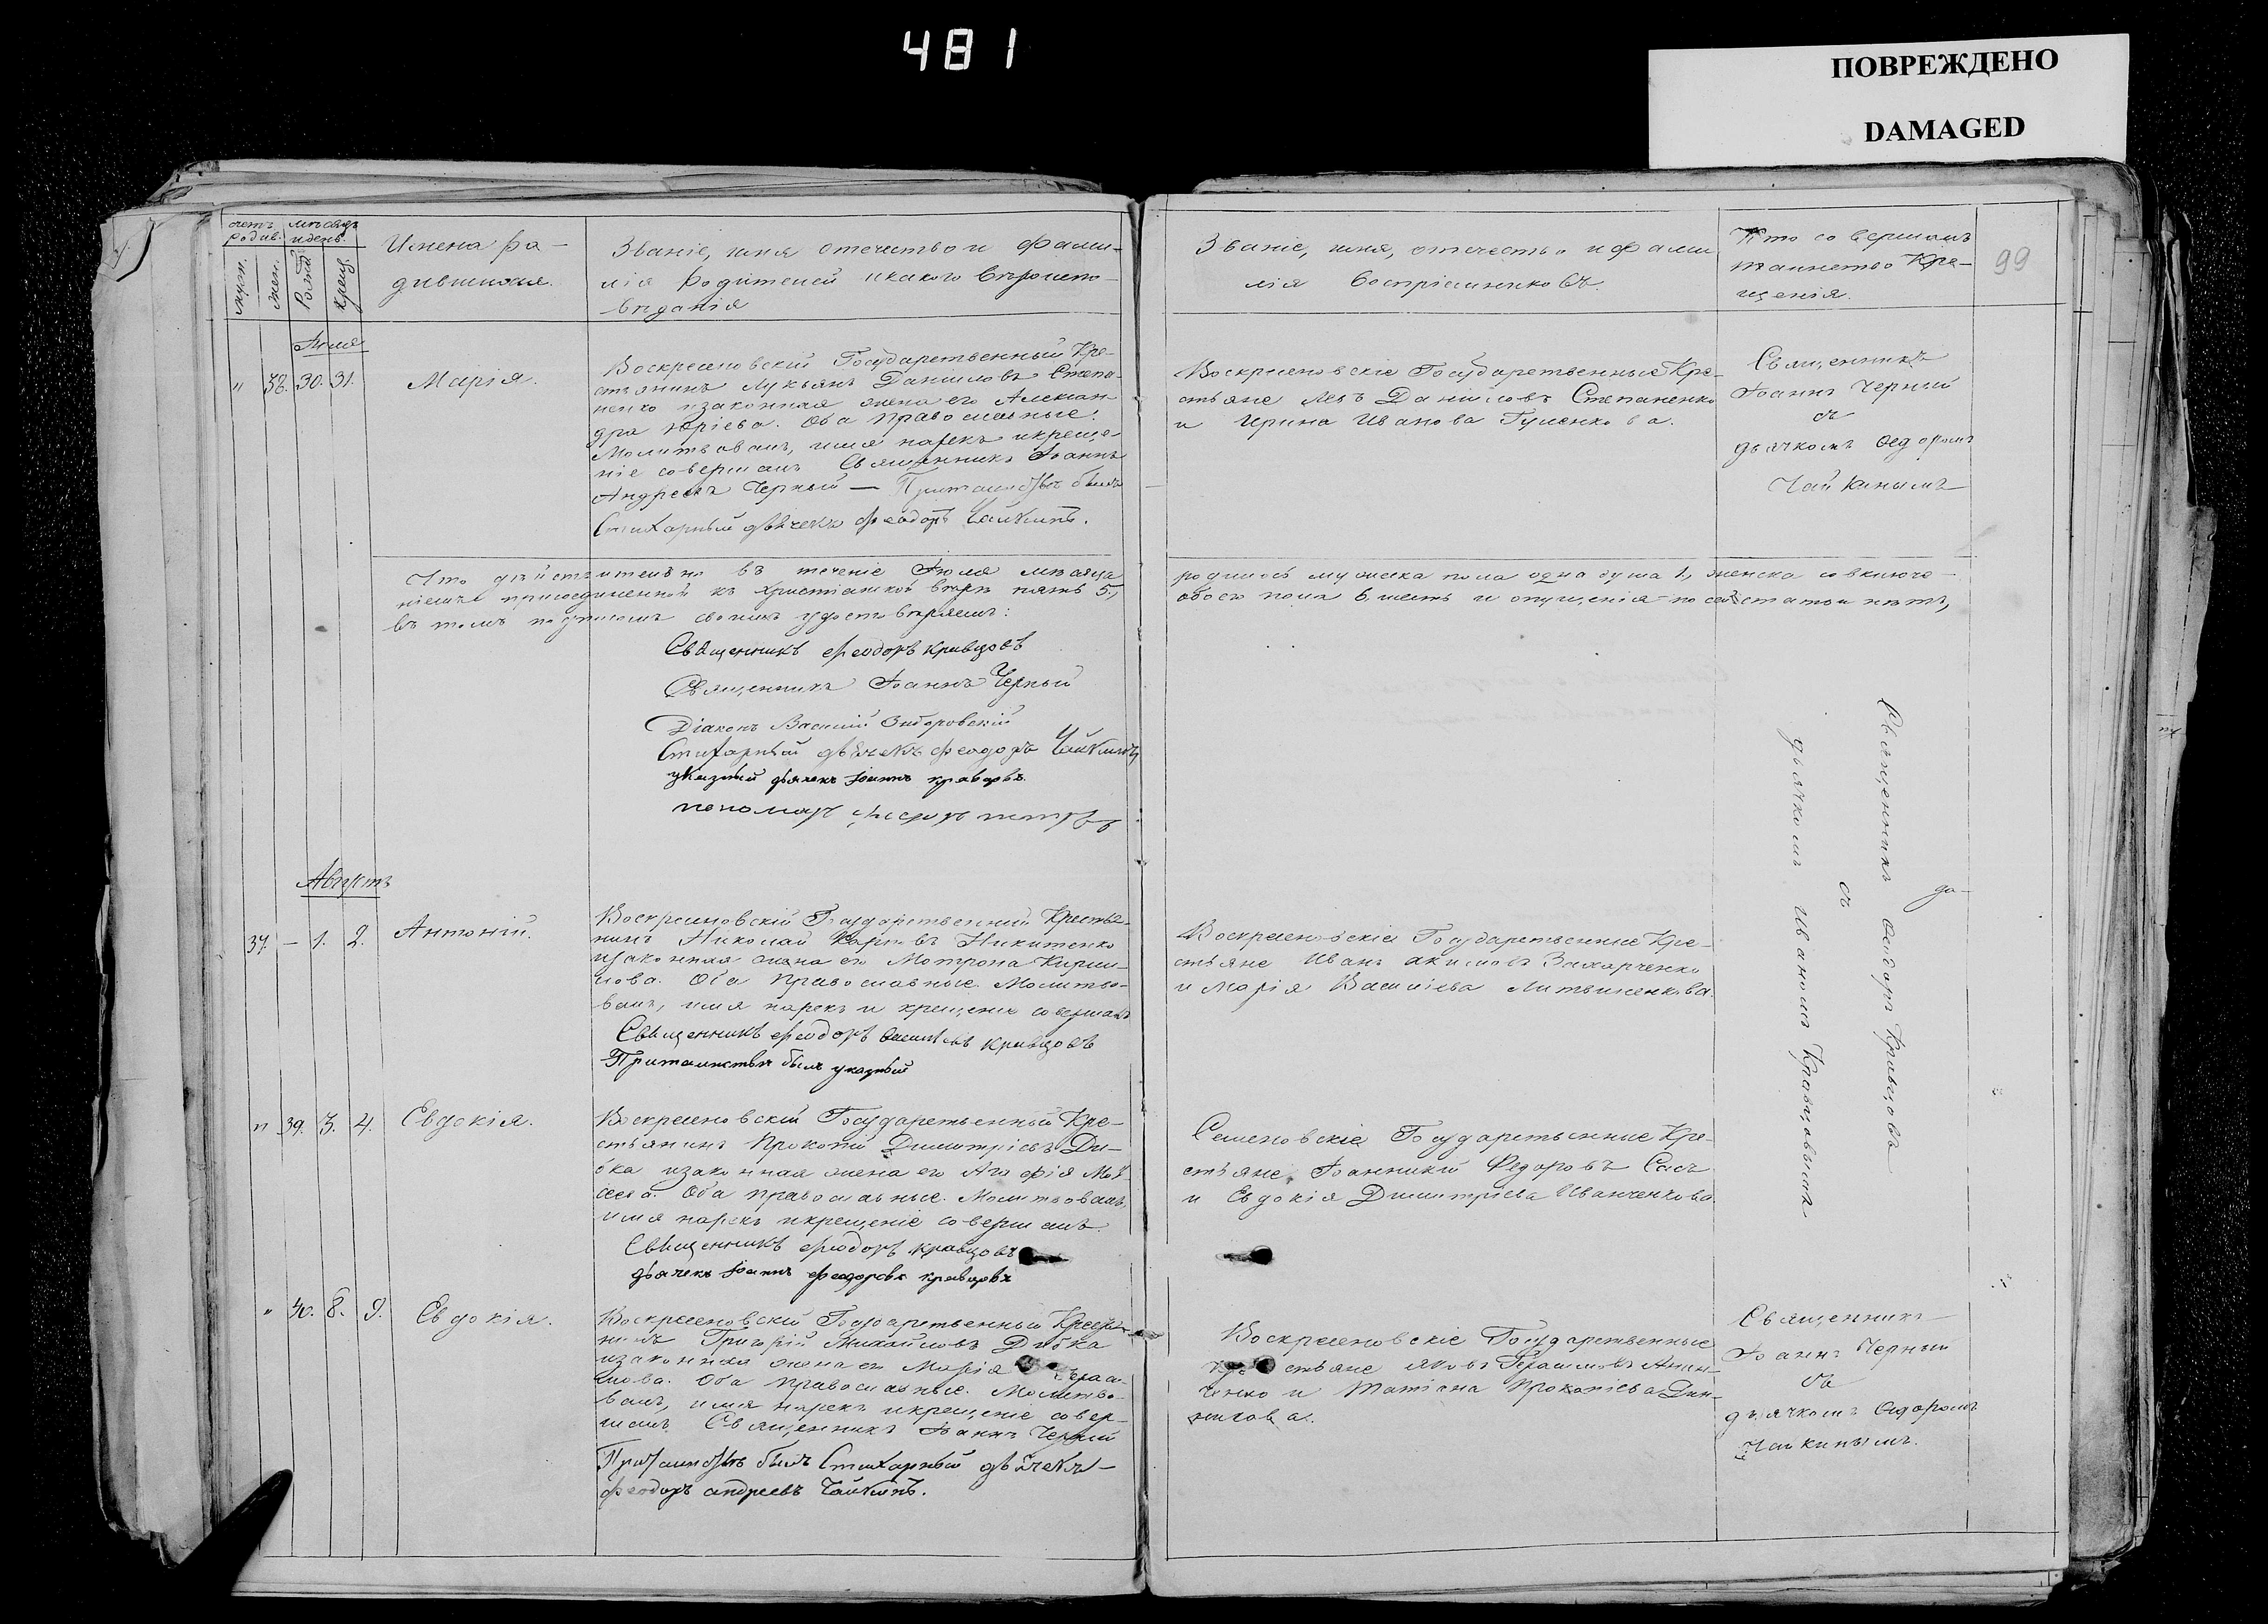 481
ПОВРЕЖДЕНО
DAMAGED
счетъ родив.
мужи.
жен.
мѣсяцъ и день.
Рожд.
Крещ.
Имена ро-
дившихся.
Званіе, имя отечество и фами-
лія Родителей и какого вѣроиспо-
вѣданія
Званіе, имя, отечество и фами
лія Воспріемниковъ.
Кто совершалъ
таинство Кре-
щенія.
99
Іюля
" 38. 30. 31.
Марія.
Воскресеновскій Государственный Кре-
стьянинъ Лукьянъ Даниловъ Степа-
ненко и законная жена его Алексан-
дра Юріева. Оба Православные.
Молитвовалъ, имя нарекъ и креще-
ніе совершалъ Священникъ Іоаннъ
Андреевъ Черный — При таинствѣ былъ
Стихарный дьячекъ Феодоръ Чайкинъ.
Воскресеновскіе Государственные Кре-
стьяне Левъ Даниловъ Степаненко
и Ирина Иванова Гуменкова.
Священникъ
Іоаннъ Черный
съ
дьячкомъ Ѳедоромъ
Чайкинымъ
Что дѣйствительно въ теченіе Іюля мѣсяца
родилось мужеска пола одна душа 1, женска со включе-
ніемъ присоединенной къ христіанской вѣрѣ пять 5.,
обоего пола 6, шесть и опущенія по сей статьи нѣтъ,
въ томъ подписомъ своимъ удостовѣряемъ:
Священникъ Феодоръ Кривцовъ
Священникъ Іоаннъ Черный
Діаконъ Василій
Стихарный дьячекъ Феодоръ Чайкинъ
указный дьячекъ Іоаннъ Кравцовъ
пономарь
Августъ
37. — 1. 2.
Антоній.
Воскресеновскій Государственный Крестья-
нинъ Николай Карповъ Никитенко
и законная жена его Мотрона Кирил-
лова. Оба Православные. Молитво-
валъ, имя нарекъ и крещеніе совершалъ
Священникъ Феодоръ Кривцовъ
При таинствѣ былъ указный
Воскресеновскіе Государственные Кре-
стьяне Иванъ Акимовъ Захарченко
и Марія Василіева Литвиненкова.
Священникъ Ѳеодоръ Кривцовъ
съ
дьячкомъ Иваномъ Кравцовымъ
" 39. 3. 4.
Евдокія.
Воскресеновскій Государственный Кре-
стьянинъ Прокопій Димитріевъ Ди-
бка и законная жена его Агафія Мої
сеева. Оба православные. Молитвовалъ,
имя нарекъ и крещеніе совершалъ.
Священникъ Феодоръ Кравцовъ
дьячекъ Іоаннъ Феодоровъ Кравцовъ
Семеновскіе Государственные Кре-
стьяне, Іоанникій Федоровъ Сасъ
и Евдокія Димитріева Иванченкова.
" 40. 8. 9.
Евдокія.
Воскресеновскій Государственный Крестья-
нинъ Григорій Михайловъ Дибка
и законная жена его Марія Гераси-
мова. Оба православные. Молитво-
валъ, имя нарекъ и крещеніе совер-
шалъ Священникъ Іоаннъ Черный
При таинствѣ былъ Стихарный дьячекъ
Феодоръ Андреевъ Чайкинъ.
Воскресеновскіе Государственные
стьяне Яковъ Герасимовъ
и Татіана Прокопіева
Священникъ
Іоаннъ Черный
съ
дьячкомъ Ѳедоромъ
Чайкинымъ.